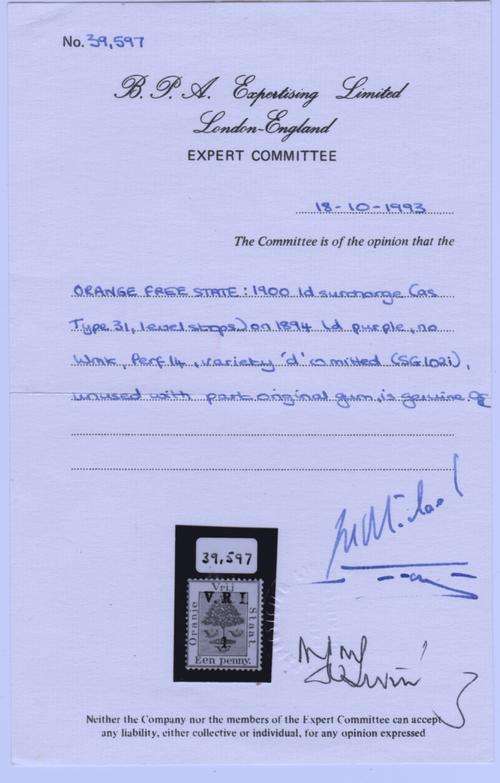 No. 39,597
B. P. A. Expertising Limited
London-England
EXPERT COMMITTEE
18-10-1993
The Committee is of the opinion that the
ORANGE FREE STATE: 1900 1d surcharge (as
Type 31, level stops) on 1894 1d purple, no
Wmk, Perf 14, variety 'd' omitted (SG102i),
unused with part original gum, is genuine.
39,597
Vrij
V.R.I
Oranje
Staat
Een penny.
Neither the Company nor the members of the Expert Committee can accept
any liability, either collective or individual, for any opinion expressed